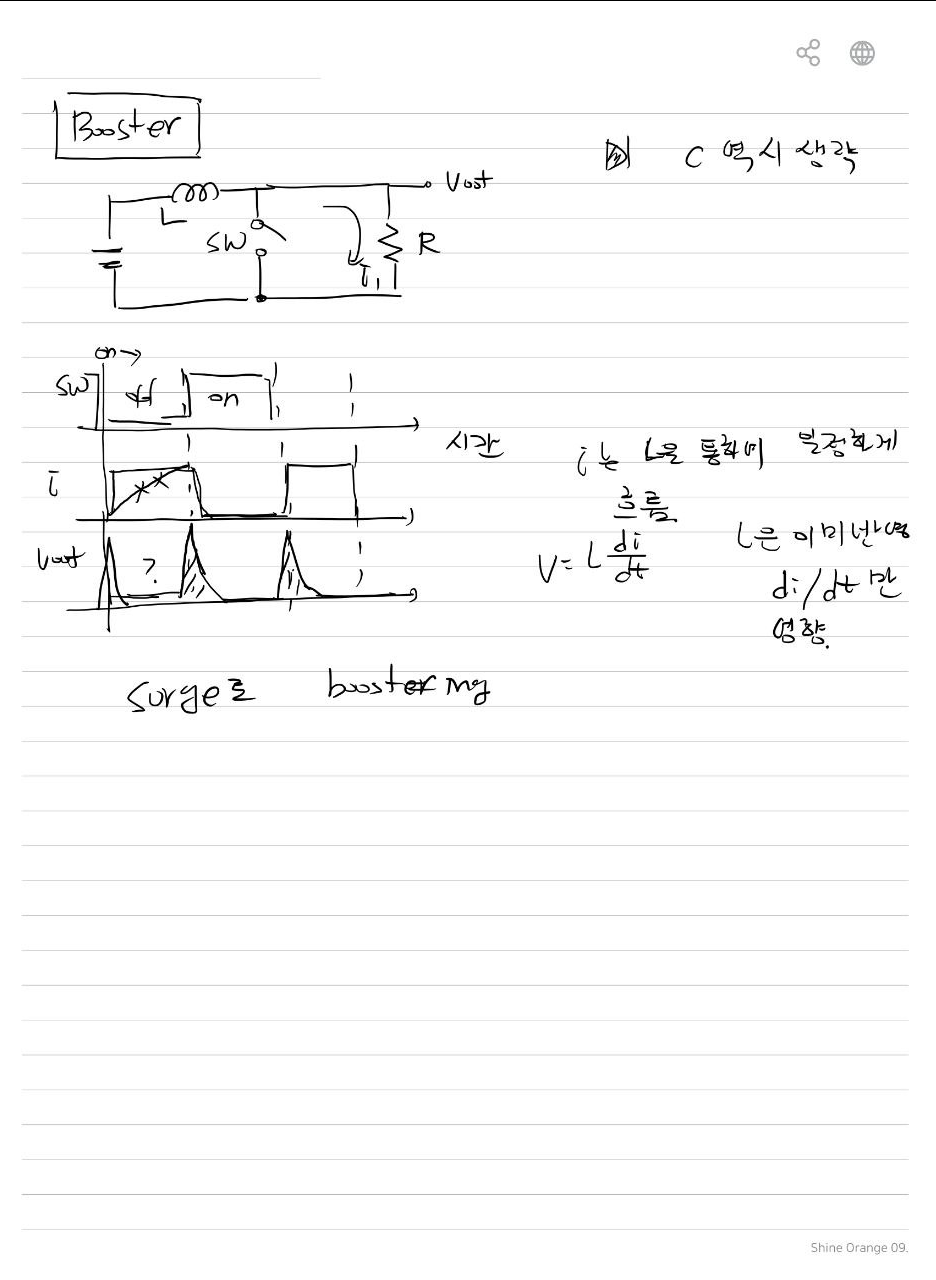 Booster
C 역시 생략
L
Vout
SW
R
i₁
on →
SW
off
on
시간
i
i는 L을 통하여 일정하게
흐름
Vout
?
V = L di/dt
L은 이미 반영
di/dt 만
영향.
surge로 boostering
Shine Orange 09.